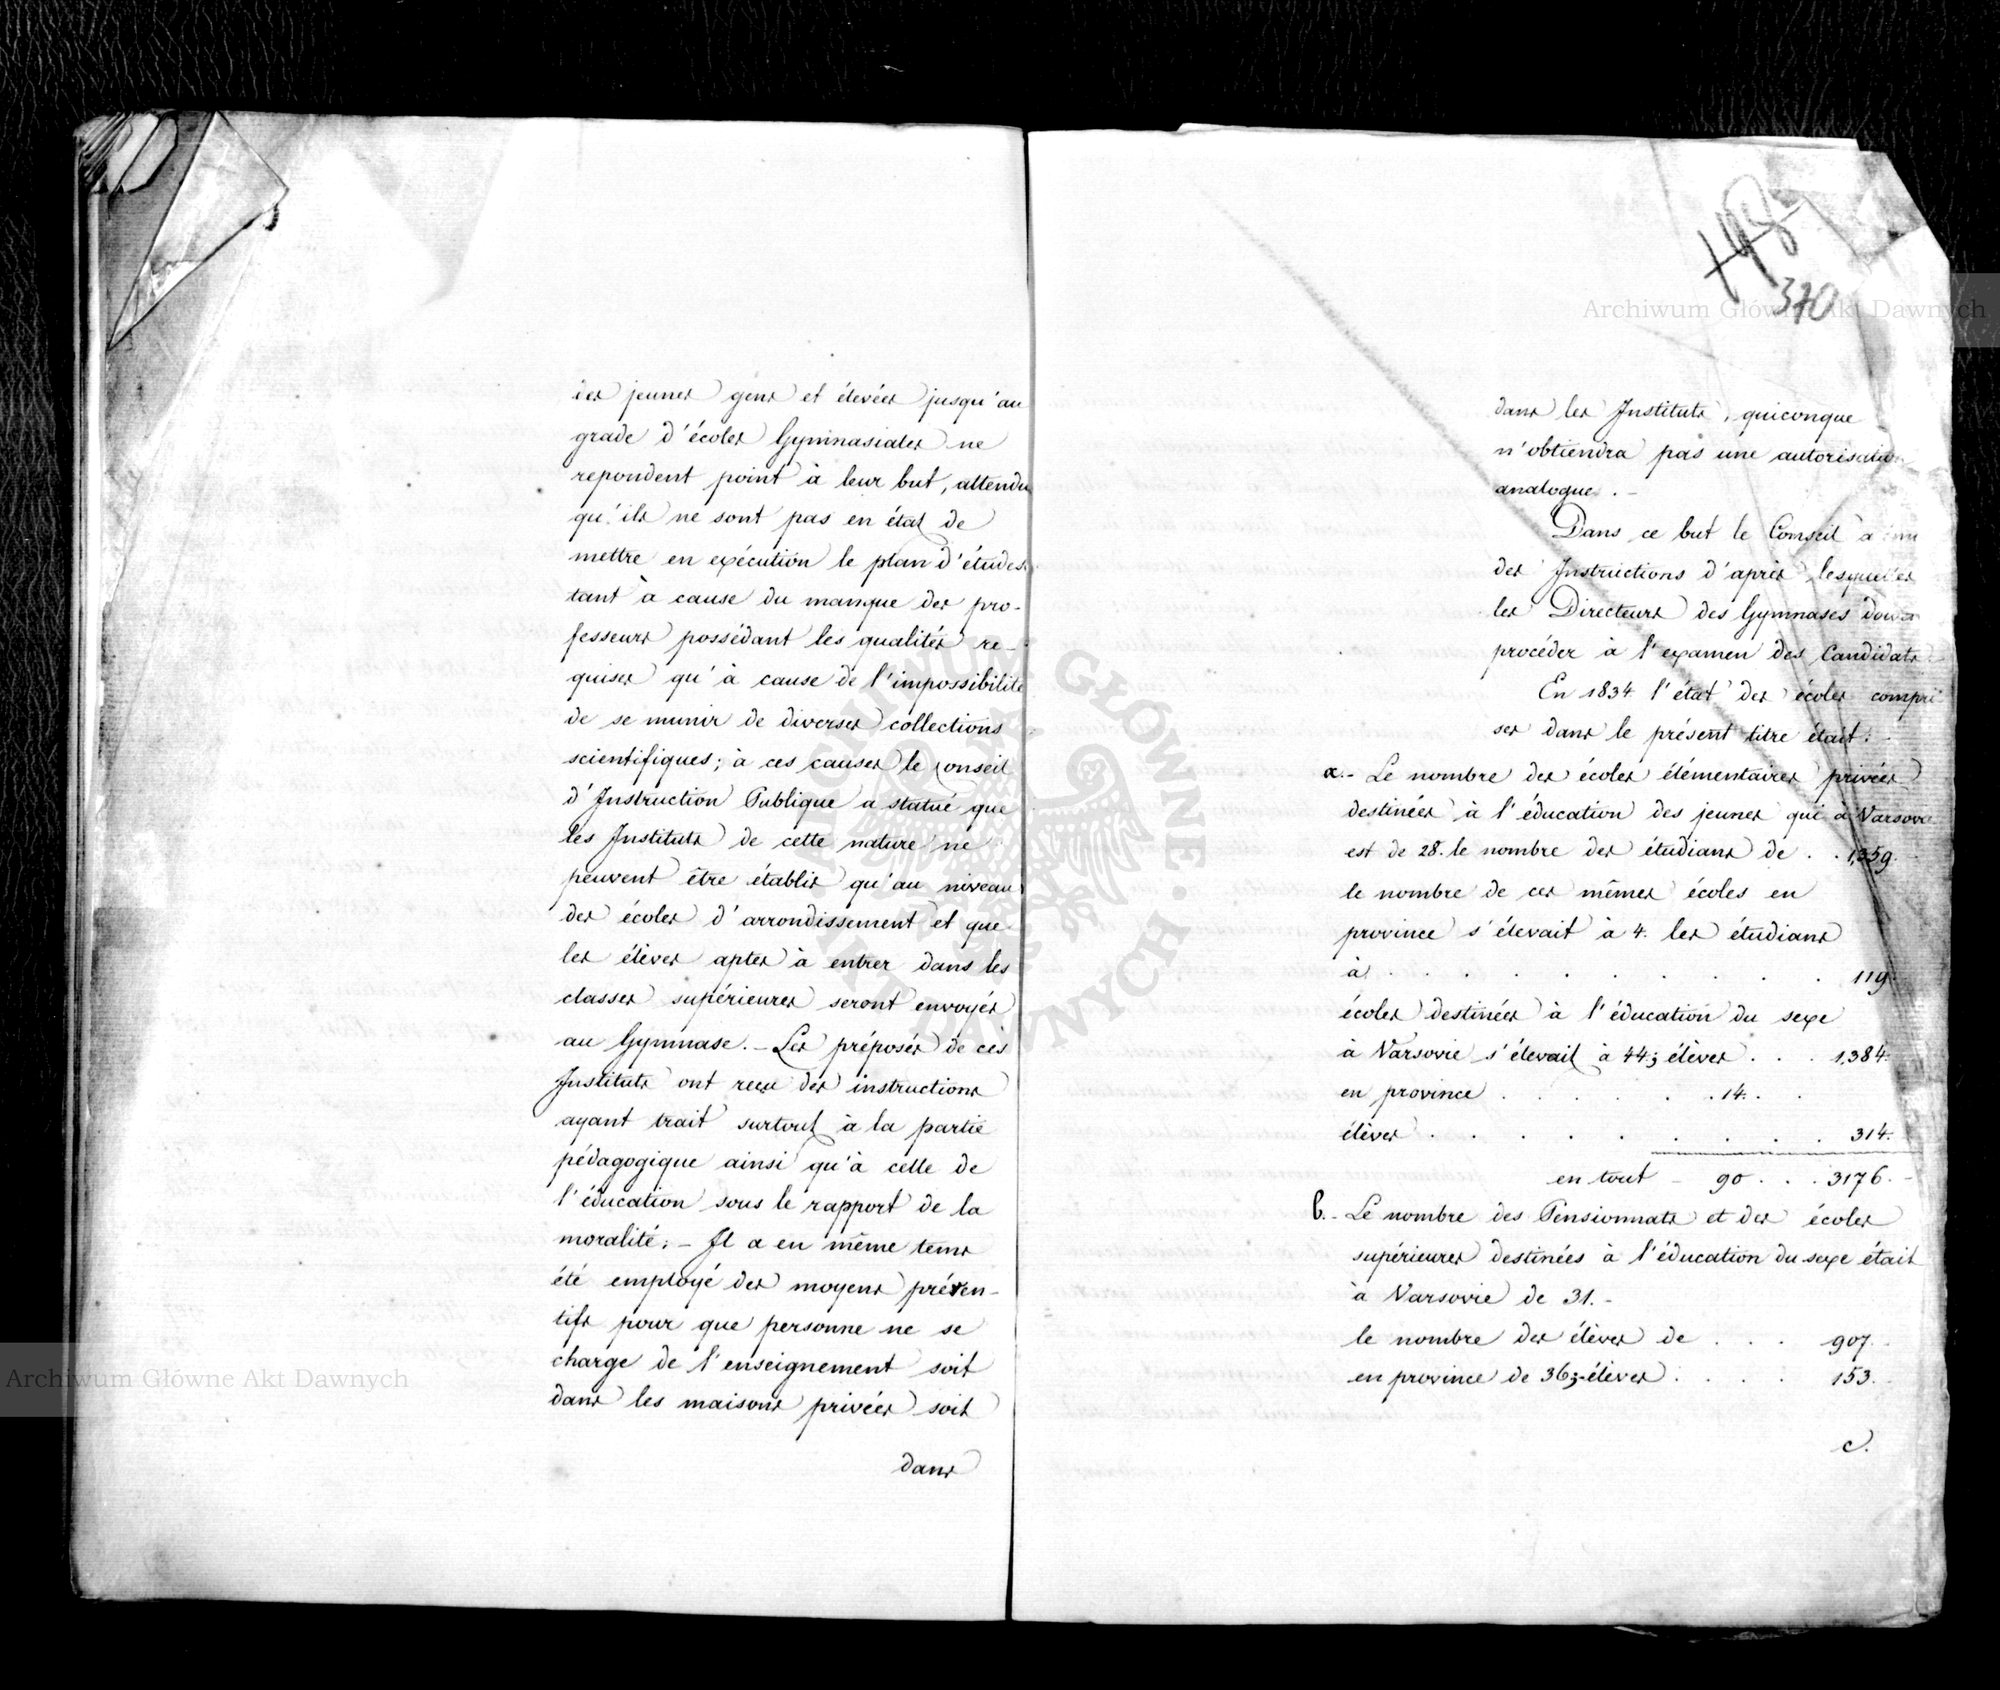 des jeunes gens et élevées jusqu'au
grade d'écoles Gymnasiales ne
repondent point à leur but, attendu
qu'ils ne sont pas en état de
mettre en exécution le plan d'études
tant à cause du manque des pro-
fesseurs possédant les qualités re-
quises qu'à cause de l'impossibilité
de se munir de diverses collections
scientifiques; à ces causes le Conseil
d'Instruction Publique a statué que
les Instituts de cette nature ne
peuvent être établis qu'au niveau
des écoles d'arrondissement et que
les élèves aptes à entrer dans les
classes supérieures seront envoyés
au Gymnase. - Les préposés de ces
Instituts ont reçu des instructions
ayant trait surtout à la partie
pédagogique ainsi qu'à celle de
l'éducation sous le rapport de la
moralité. - Il a en même tems
été employé des moyens préven-
tifs pour que personne ne se
charge de l'enseignement soit
dans les maisons privées soit
dans
370
dans les Instituts, quiconque
n'obtiendra pas une autorisation
analogue. -
Dans ce but le Conseil a
des Instructions d'après lesquelles
les Directeurs des Gymnases
procéder à l'examen des Candidats
En 1834 l'état des écoles compri
ses dans le présent titre était:
a. - Le nombre des écoles élémentaires privées
destinées à l'éducation des jeunes qui à Varsovie
est de 28. le nombre des étudians de . . 1,359.
le nombre de ces mêmes écoles en
province s'élevait à 4. les étudians
à . . . . . . . . . 119.
écoles destinées à l'éducation du sexe
à Varsovie s'élevait à 44; élèves . . . 1,384.
en province . . . . . 14. . .
élèves . . . . . . . . . 314.
en tout - 90 . . . 3176. -
b. - Le nombre des Pensionnats et des écoles
supérieures destinées à l'éducation du sexe était
à Varsovie de 31. -
le nombre des élèves de . . . 907.
en province de 36; - élèves . . . . 153.
c.
Archiwum Główne Akt Dawnych
Archiwum Główne Akt Dawnych
ARCHIWUM GŁÓWNE AKT DAWNYCH